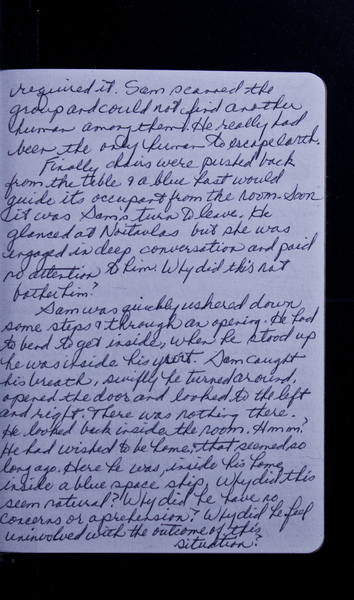 required it. Sam scanned the
group and could not find another
human among them. He really had
been the only human to escape earth.
Finally chairs were pushed back
from the table & a blue last would
guide its occupant from the room. Soon
it was Sam's turn to leave. He
glanced at Noitavlas but she was
engaged in deep conversation and paid
no attention to him. Why did this not
bother him?
Sam was quickly ushered down
some steps & through an opening. He had
to bend to get inside, when he stood up
he was inside his yurt. Sam caught
his breath, swiftly he turned around,
opened the door and looked to the left
and right. There was nothing there.
He looked back inside the room. Hmmm?
He had wished to be home, that seemed so
long ago. Here he was, inside his home
inside a blue space ship, Why did this
seem natural? Why did he have no
concerns or aprehension? Why did he feel
uninvolved with the outcome of this
situation?